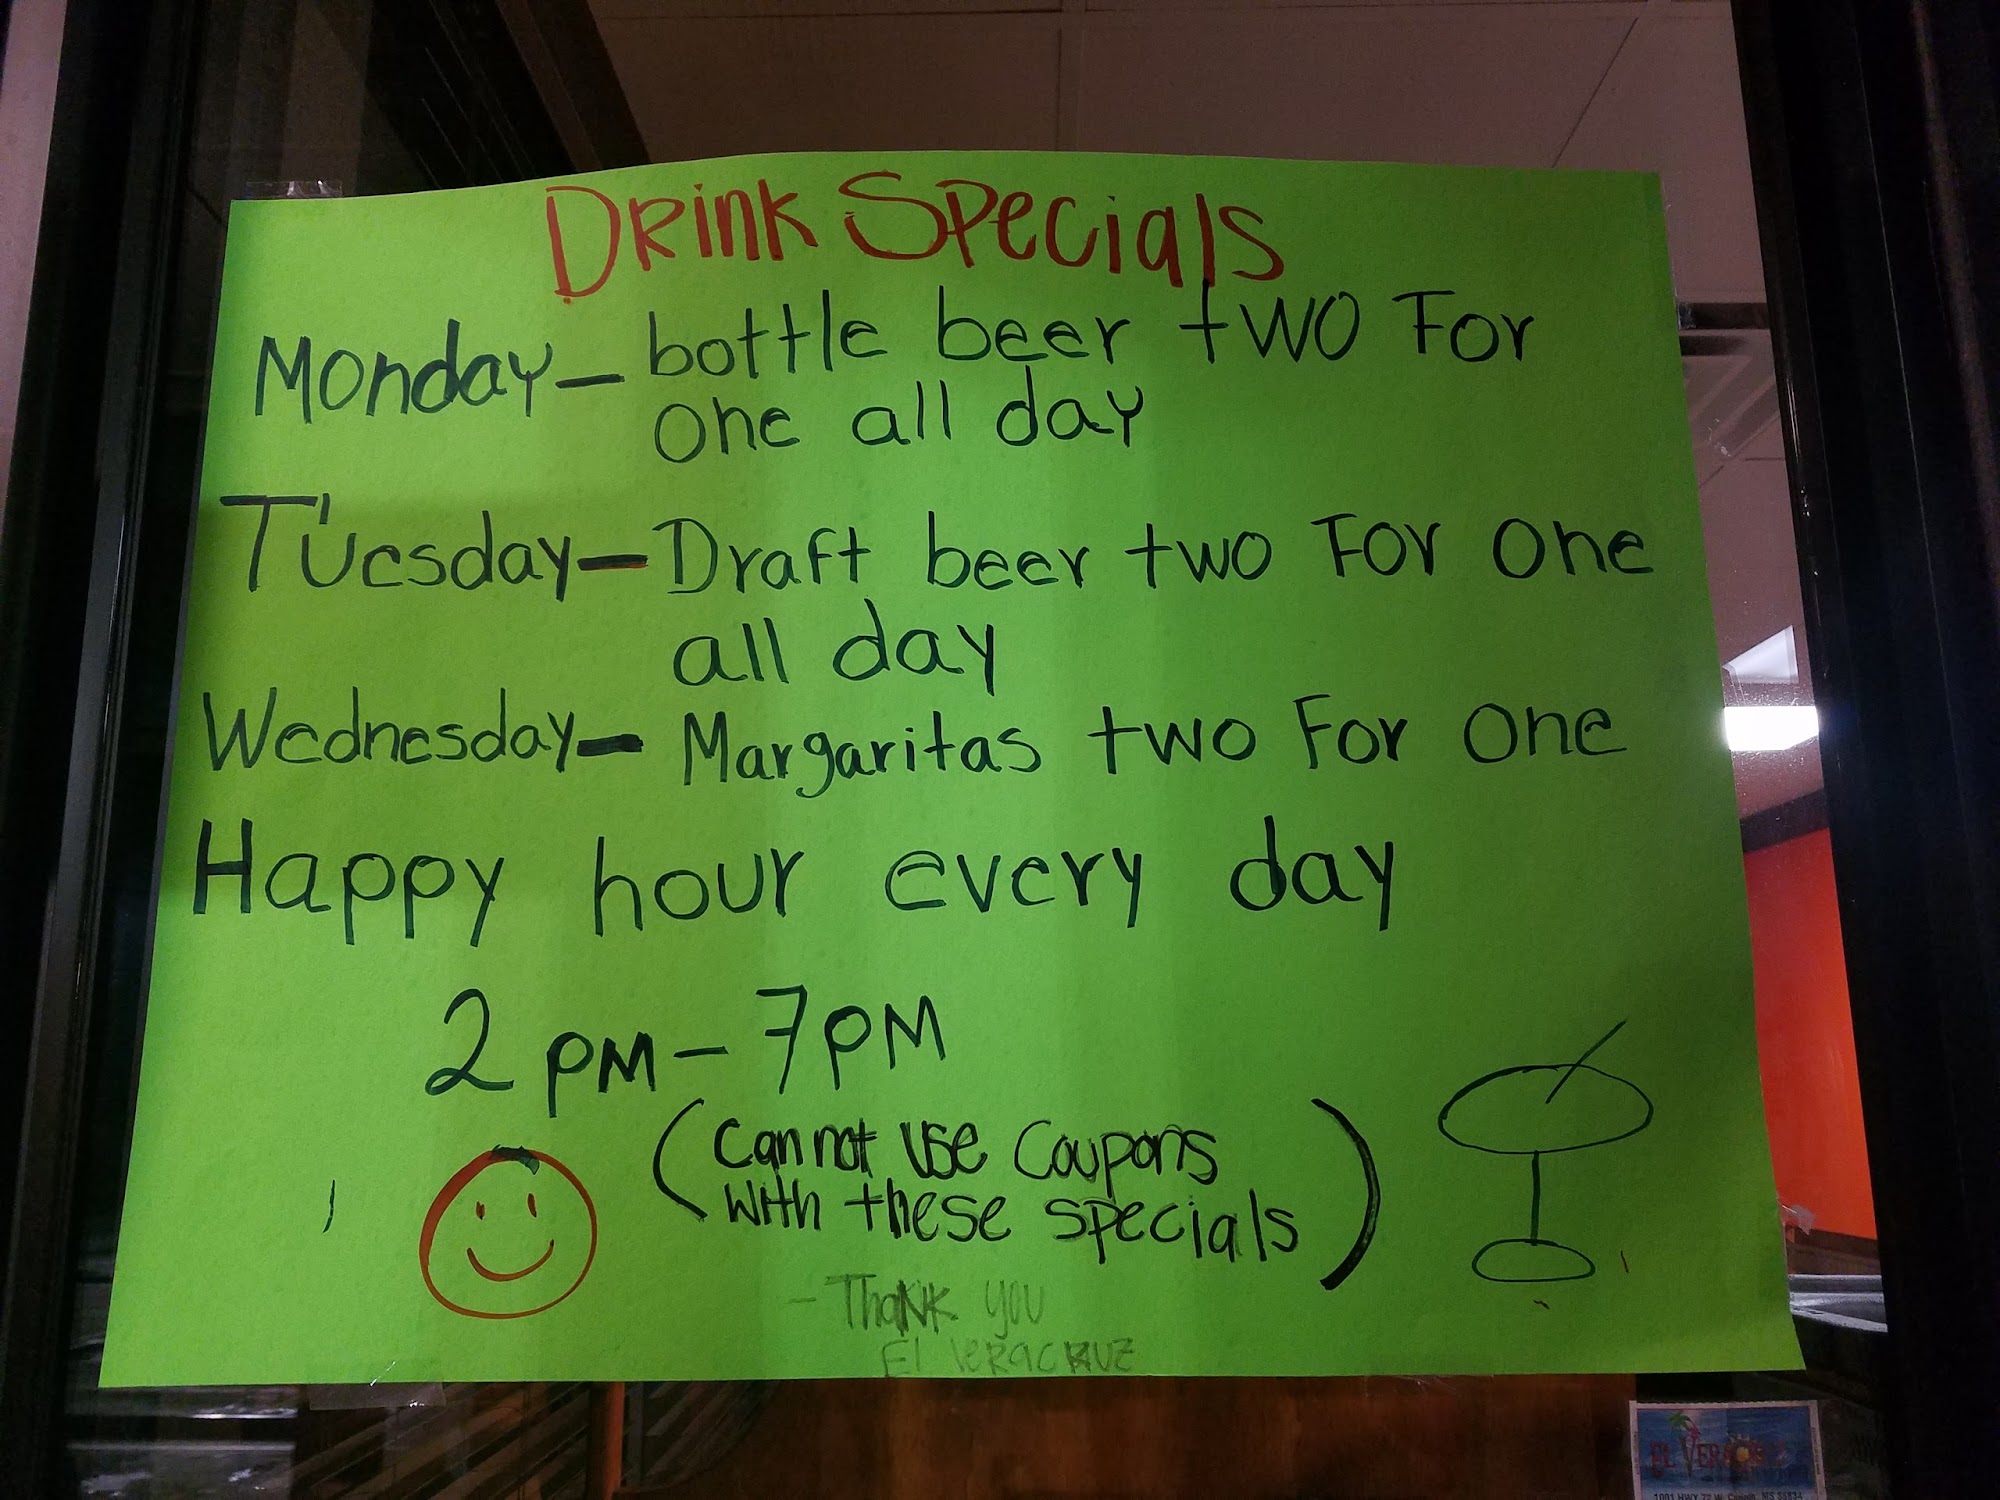 Drink Specials
Monday - bottle beer two For
one all day
Tuesday - Draft beer two For one
all day
Wednesday - Margaritas two For one
Happy hour every day
2 PM - 7 PM
(Can not use Coupons
with these specials)
- Thank you
El Veracruz
EL VERACRUZ